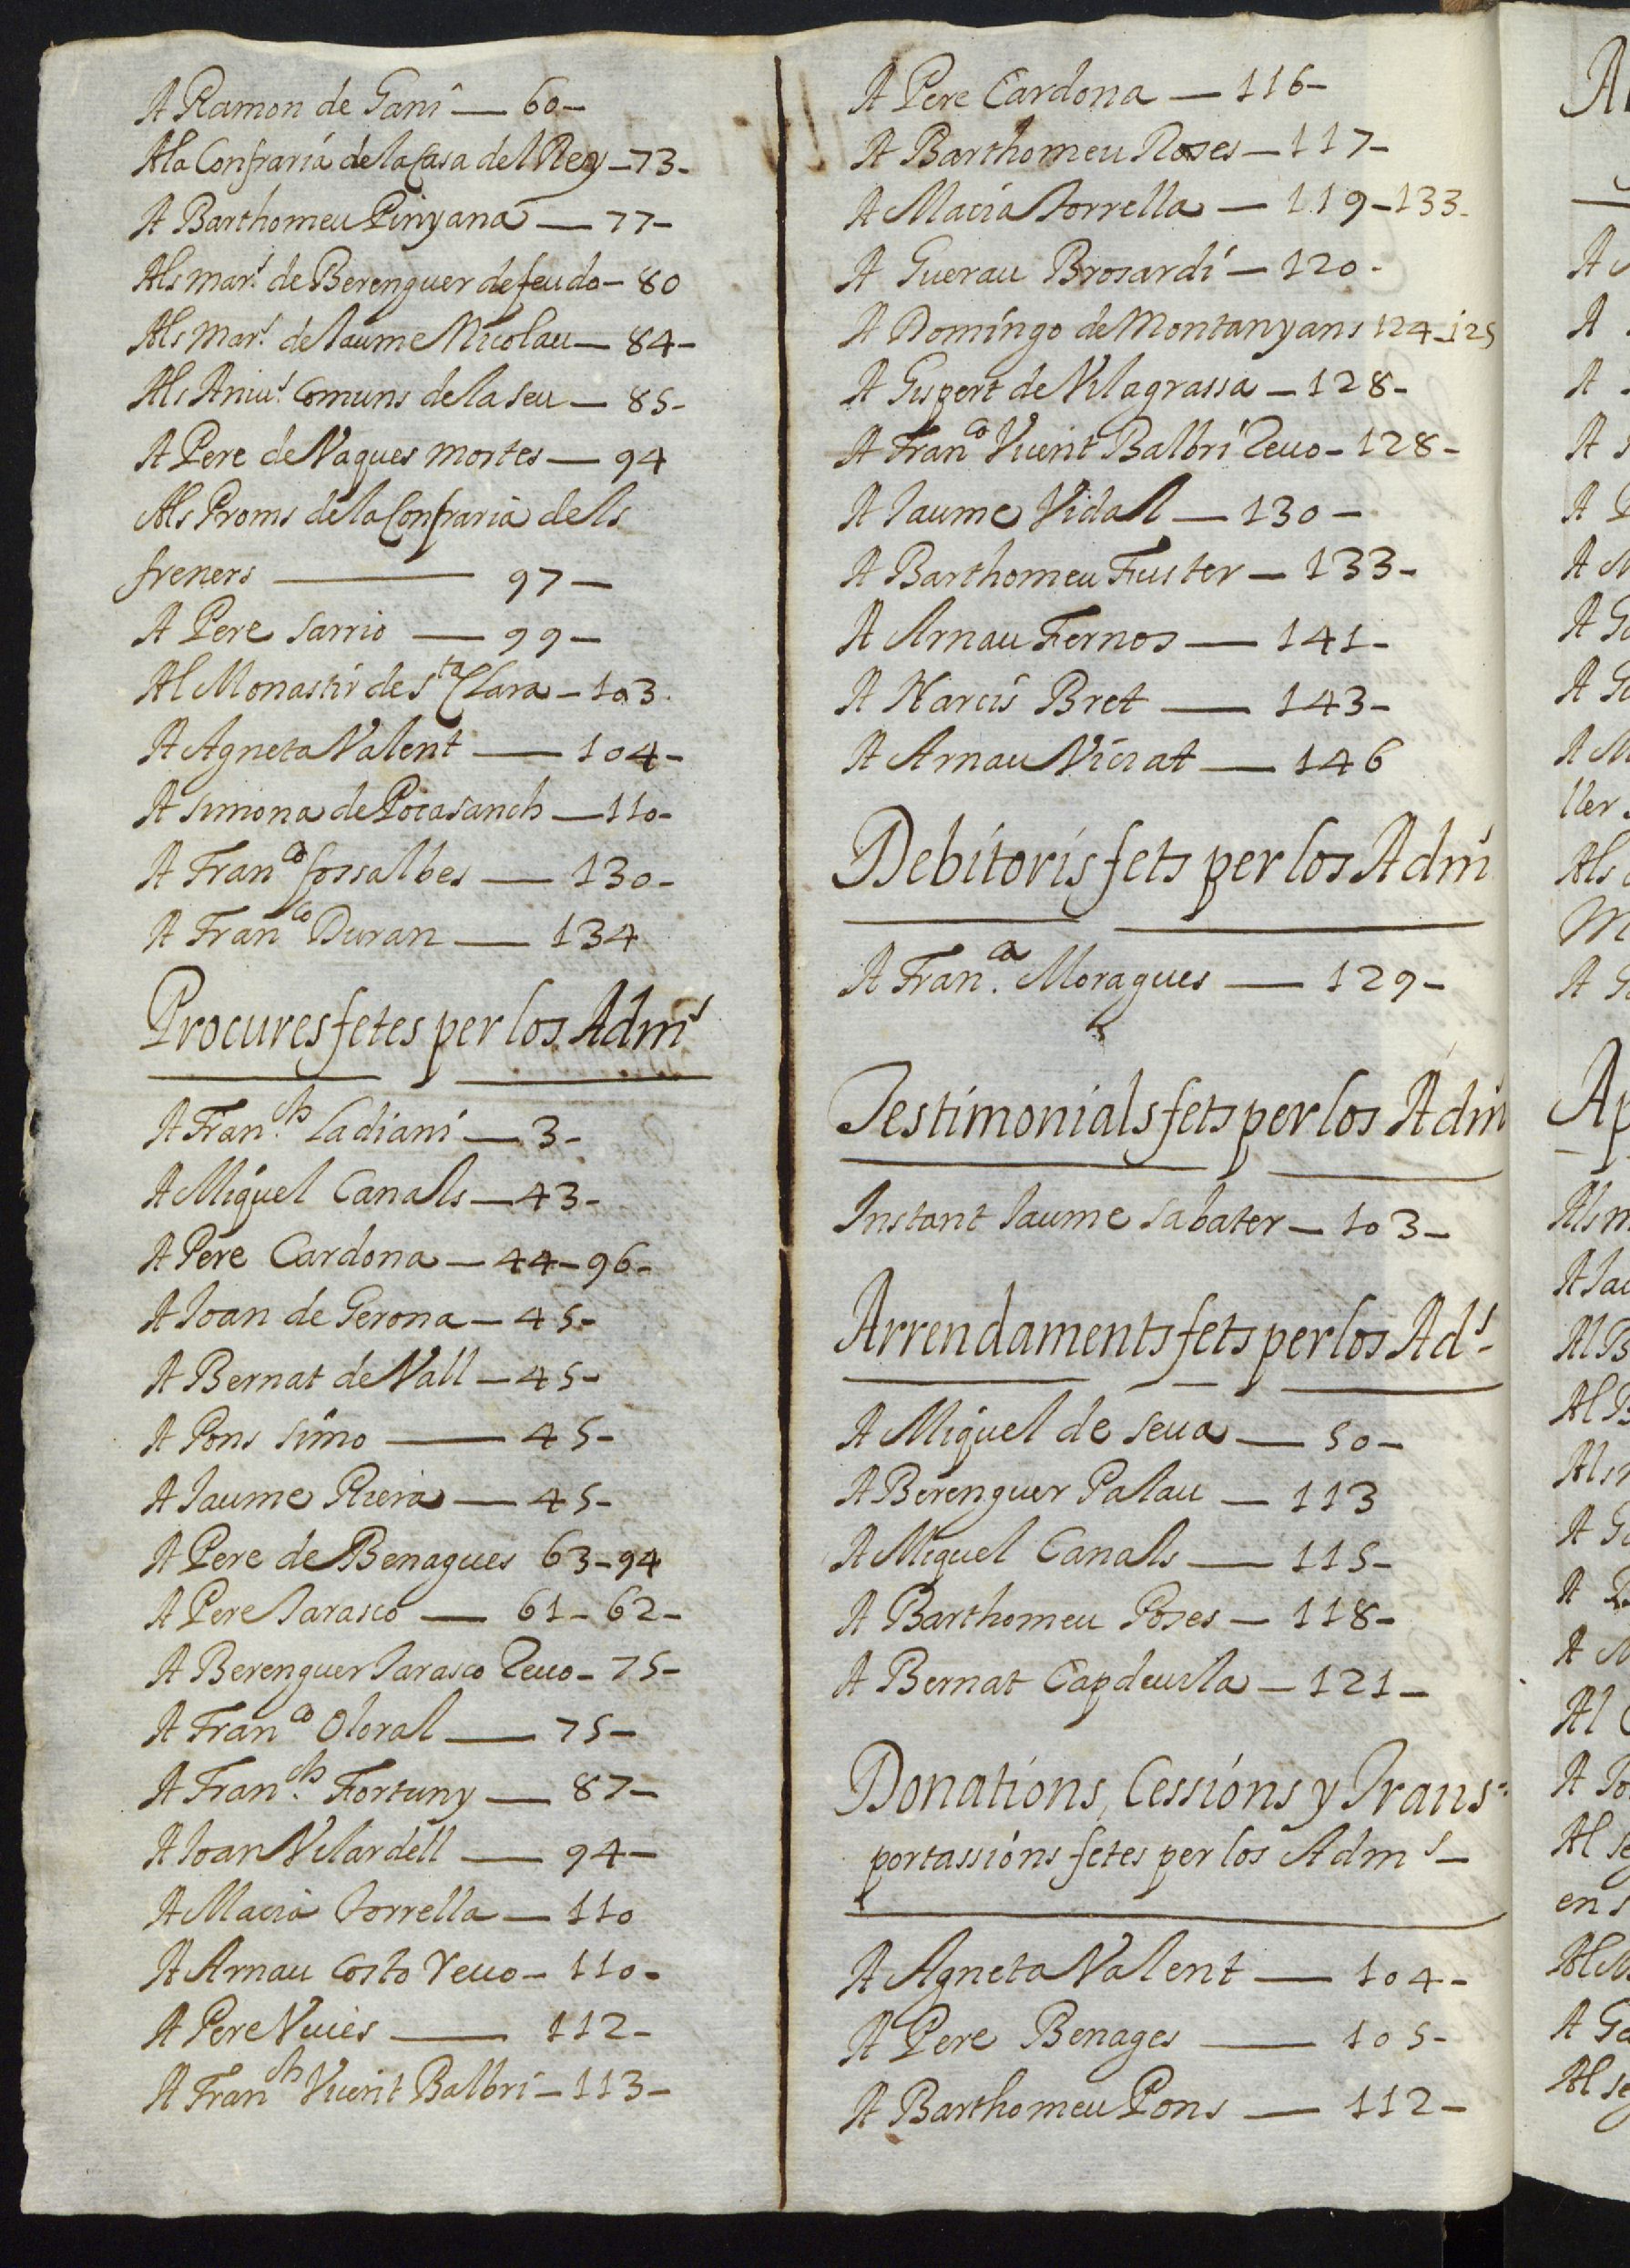 A Ramon de Gani — 60 –
A la Confraria de la Casa del Rey – 73 –
A Barthomeu Pinyana — 77 –
Als mar.s de Berenguer de feudo – 80
Als Mar.s de Iaume Nicolau — 84 –
Als Aniu.s Comuns de la Seu — 85 –
A Pere de Vagues mortes — 94
Als Proms de la Confraria dels
freners — 97 —
A Pere Sarrio — 99 –
Al Monastir de S.ta Clara – 103.
A Agneta Valent — 104 –
A Simona de Pocasanch — 110 –
A Fran.co Cossalbes — 130 –
A Fran.co Duran — 134
Procures fetes per los Adm.s
A Fran.ch Ladiani — 3 –
A Miquel Canals — 43 –
A Pere Cardona — 44 – 96 –
A Ioan de Gerona — 45 –
A Bernat de Vall — 45 –
A Pons Simo — 45 –
A Iaume Riera — 45 –
A Pere de Benagues 63 – 94
A Pere Tarasco — 61 – 62 –
A Berenguer Tarasco Zeuo – 75 –
A Fran.co Oloral — 75 –
A Fran.ch Fortuny — 87 –
A Ioan Vilardell — 94 –
A Macia Torrella — 110
A Arnau Costo Veuo – 110 –
A Pere Viues — 112 –
A Fran.ch Vicent Balbri – 113 –
A Pere Cardona — 116 –
A Barthomeu Roses – 117 –
A Macia Torrella — 119 – 133 –
A Guerau Brosardi – 120 –
A Domingo de Montanyans 124 – 125
A Gispert de Vilagrassa – 128 –
A Fran.co Vicent Balbri Zeuo – 128 –
A Iaume Vidal — 130 –
A Barthomeu Fuster – 133 –
A Arnau Fernos — 141 –
A Narcis Bret — 143 –
A Arnau Vicrat — 146
Debitoris fets per los Adm
A Fran.ca Moragues — 129 –
Testimonials fets per los Adm
Instant Iaume Sabater – 103 –
Arrendaments fets per los Ad.s –
A Miquel de Seua — 50 –
A Berenguer Palau — 113
A Miquel Canals — 115 –
A Barthomeu Poses – 118 –
A Bernat Capdeuila – 121 –
Donations, Cessions y Trans-
portassions fetes per los Adm.s –
A Agneta Valent — 104 –
A Pere Benages — 105 –
A Barthomeu Pons — 112 –